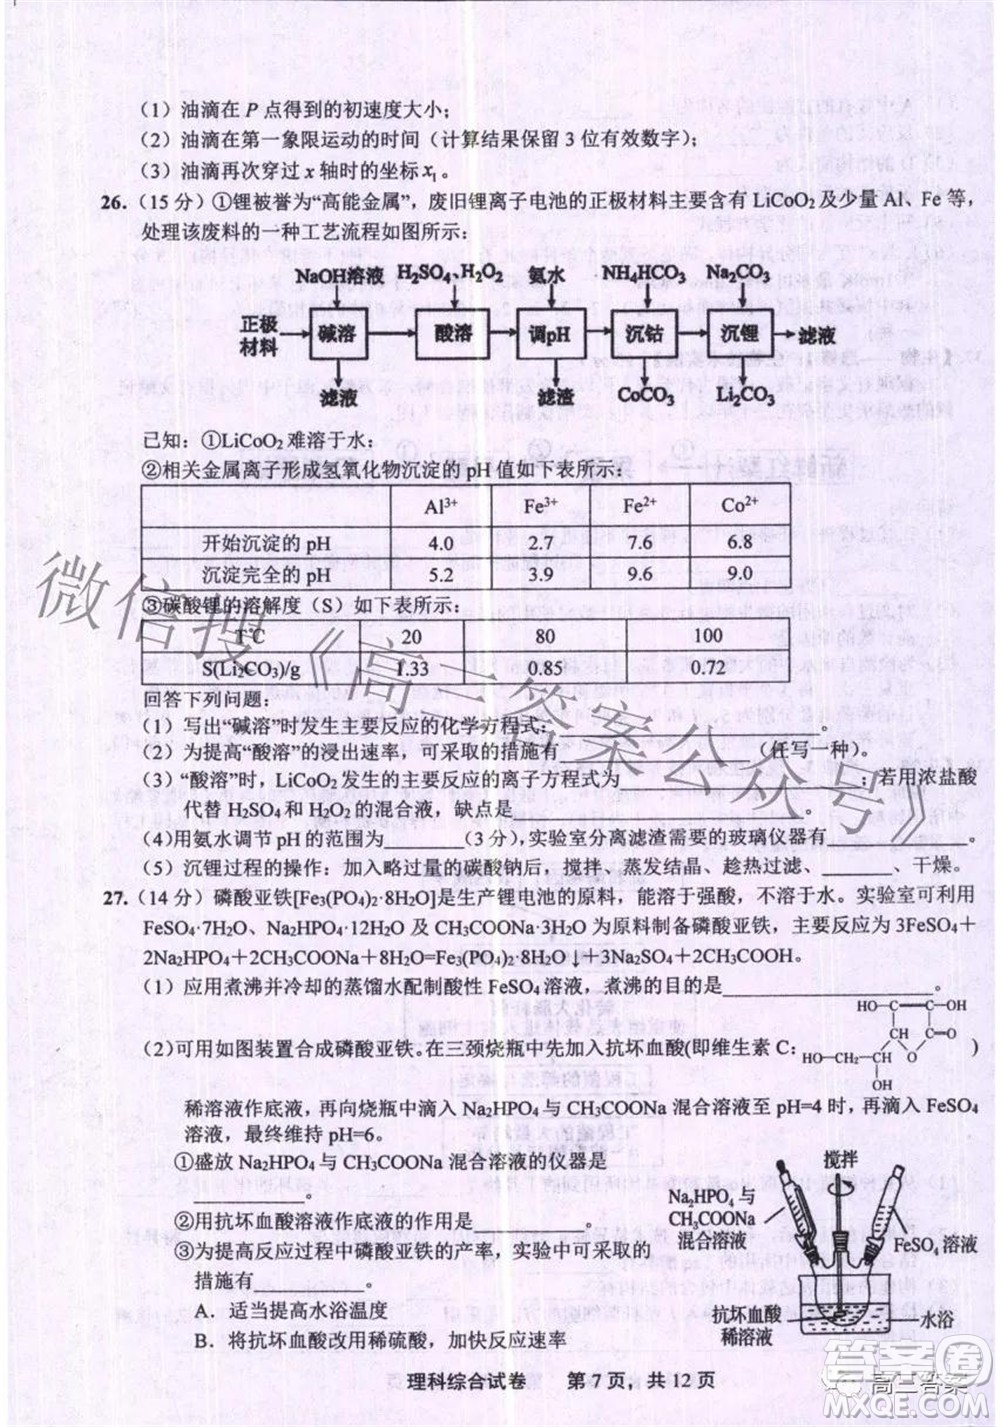 (1) 油滴在 P 点得到的初速度大小;
(2) 油滴在第一象限运动的时间 (计算结果保留 3 位有效数字);
(3) 油滴再次穿过 x 轴时的坐标 x₁.
26. (15 分) ①锂被誉为“高能金属”, 废旧锂离子电池的正极材料主要含有 LiCoO2 及少量 Al、Fe 等,
处理该废料的一种工艺流程如图所示:
NaOH溶液 H₂SO₄、H₂O₂ 氨水 NH₄HCO₃ Na₂CO₃
正极材料 碱溶 酸溶 调pH 沉钴 沉锂 滤液
滤液 滤渣 CoCO₃ Li₂CO₃
已知: ①LiCoO2 难溶于水;
②相关金属离子形成氢氧化物沉淀的 pH 值如下表所示:
Al³⁺ Fe³⁺ Fe²⁺ Co²⁺
开始沉淀的 pH 4.0 2.7 7.6 6.8
沉淀完全的 pH 5.2 3.9 9.6 9.0
③碳酸锂的溶解度 (S) 如下表所示:
T℃ 20 80 100
S(Li₂CO₃)/g 1.33 0.85 0.72
回答下列问题:
(1) 写出“碱溶”时发生主要反应的化学方程式:
(2) 为提高“酸溶”的浸出速率, 可采取的措施有 (任写一种)。
(3) “酸溶”时, LiCoO2 发生的主要反应的离子方程式为 ; 若用浓盐酸
代替 H₂SO₄ 和 H₂O₂ 的混合液, 缺点是
(4) 用氨水调节 pH 的范围为________(3 分), 实验室分离滤渣需要的玻璃仪器有____________。
(5) 沉锂过程的操作: 加入略过量的碳酸钠后, 搅拌、蒸发结晶、趁热过滤、________、干燥。
27. (14 分) 磷酸亚铁[Fe₃(PO₄)₂·8H₂O]是生产锂电池的原料, 能溶于强酸, 不溶于水. 实验室可利用
FeSO₄·7H₂O、Na₂HPO₄·12H₂O 及 CH₃COONa 为原料制备磷酸亚铁, 主要反应为 3FeSO₄+
2Na₂HPO₄+2CH₃COONa+8H₂O=Fe₃(PO₄)₂·8H₂O↓+2CH₃COOH+3Na₂SO₄.
(1) 应用煮沸并冷却的蒸馏水配制酸性 FeSO₄ 溶液, 煮沸的目的是__________________。
(2) 可用如图装置合成磷酸亚铁. 在三颈烧瓶中先加入抗坏血酸(即维生素 C: )
HO OH
HO O O
OH
稀溶液作底液, 再向烧瓶中滴入 Na₂HPO₄ 与 CH₃COONa 混合溶液至 pH=4 时, 再滴入 FeSO₄
溶液, 最终维持 pH=6.
①盛放 Na₂HPO₄ 与 CH₃COONa 混合溶液的仪器是
____________。
②用抗坏血酸溶液作底液的作用是____________。
③为提高反应过程中磷酸亚铁的产率, 实验中可采取的
措施有____________。
A. 适当提高水浴温度
B. 将抗坏血酸改用稀硫酸, 加快反应速率
搅拌
Na₂HPO₄ 与
CH₃COONa
混合溶液
FeSO₄ 溶液
抗坏血酸
稀溶液
水浴
理科综合试卷 第 7 页, 共 12 页
微信搜《高三答案公众号》
答案圈
高三答案